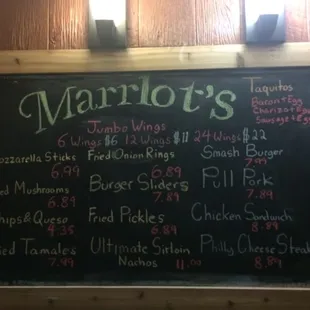 Marrlot's
Taquitos
Bacon & Egg
Chorizo & Egg
Sausage & Egg
Jumbo Wings
6 Wings $6 12 Wings $11 24 Wings $22
Mozzarella Sticks
6.99
Fried Onion Rings
6.89
Smash Burger
7.99
Fried Mushrooms
6.89
Burger Sliders
7.89
Pull Pork
7.89
Chips & Queso
4.35
Fried Pickles
6.89
Chicken Sandwich
8.89
Fried Tamales
7.99
Ultimate Sirloin
Nachos 11.00
Philly Cheese Steak
8.89